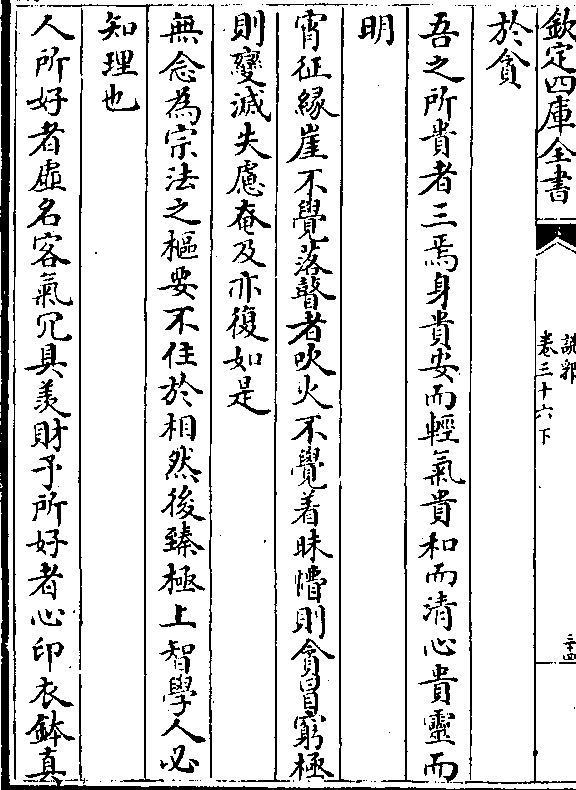 欽定四庫全書
說郛
卷三十六下
三十四
於貪
吾之所貴者三焉身貴安而輕氣貴和而清心貴靈而
明
宵征緣崖不覺落瞽者吹火不覺着昧懵則貪冒窮極
則變滅失慮奄及亦復如是
無念為宗法之樞要不住於相然後臻極上智學人必
知理也
人所好者虛名客氣冗具羨財予所好者心印衣鉢真